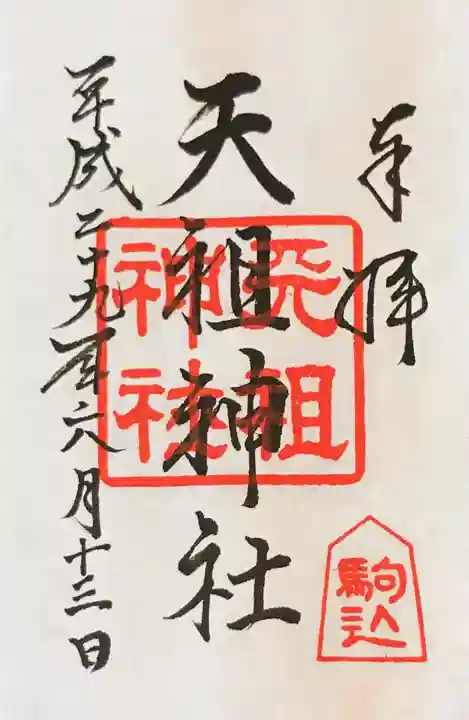 奉拝
天祖神社
天祖
神社
駒込
平成二十九年六月十三日